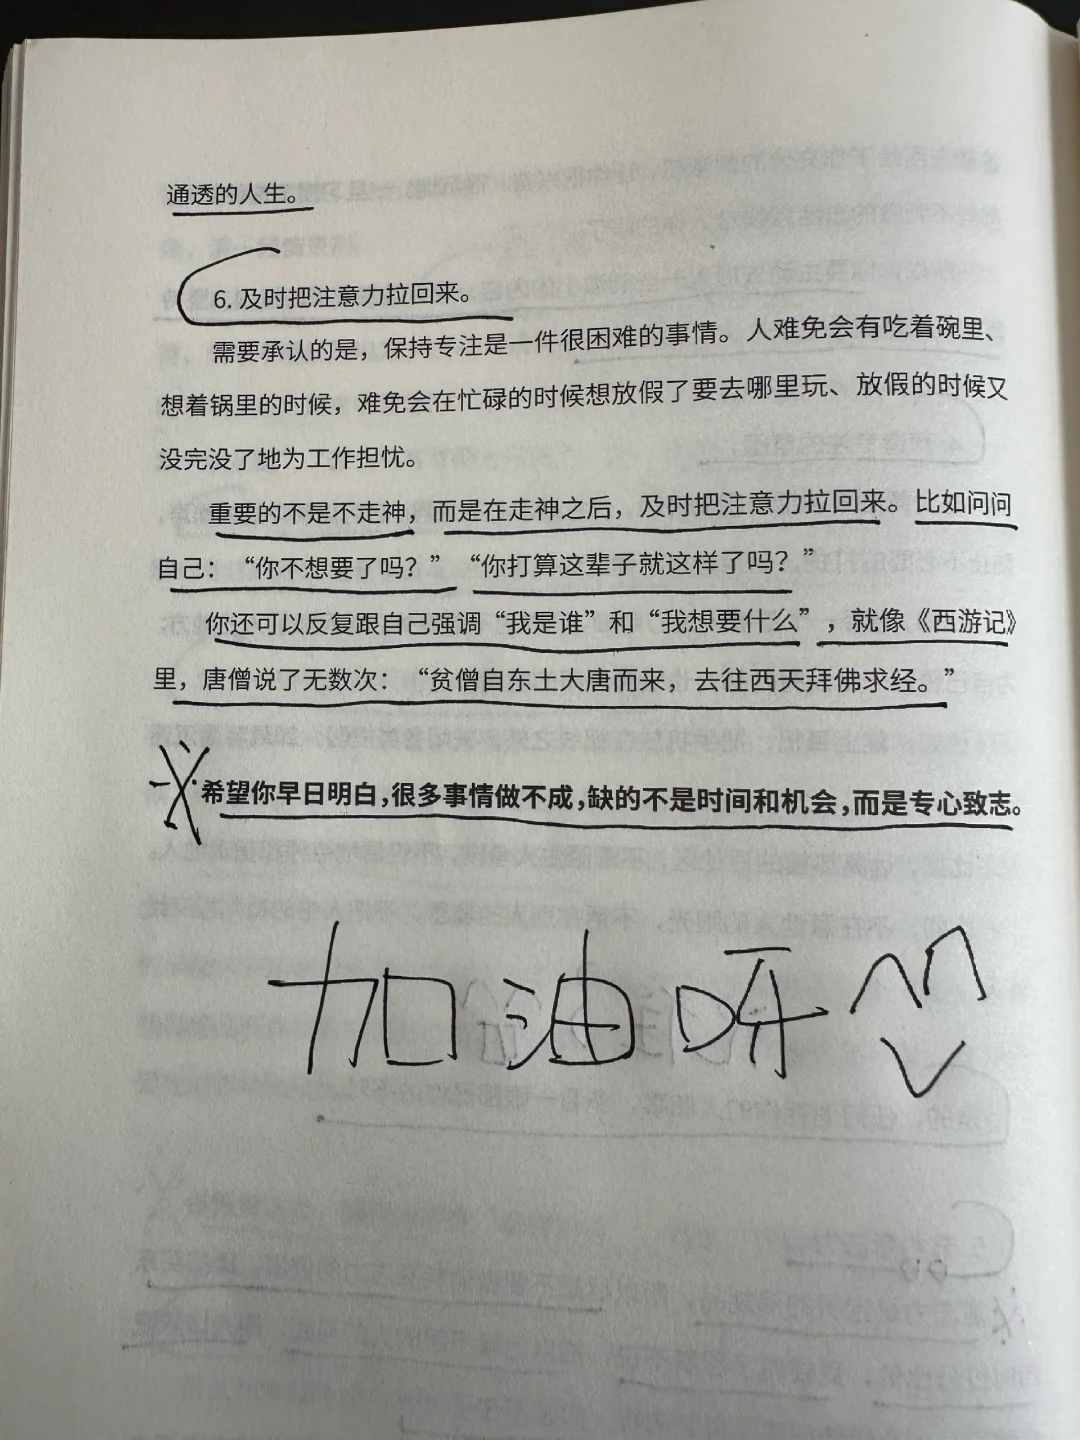 通透的人生。
6. 及时把注意力拉回来。
需要承认的是，保持专注是一件很困难的事情。人难免会有吃着碗里、
想着锅里的时候，难免会在忙碌的时候想放假了要去哪里玩、放假的时候又
没完没了地为工作担忧。
重要的不是不走神，而是在走神之后，及时把注意力拉回来。比如问问
自己：“你不想要了吗？”“你打算这辈子就这样了吗？”
你还可以反复跟自己强调“我是谁”和“我想要什么”，就像《西游记》
里，唐僧说了无数次：“贫僧自东土大唐而来，去往西天拜佛求经。”
希望你早日明白，很多事情做不成，缺的不是时间和机会，而是专心致志。
加油呀